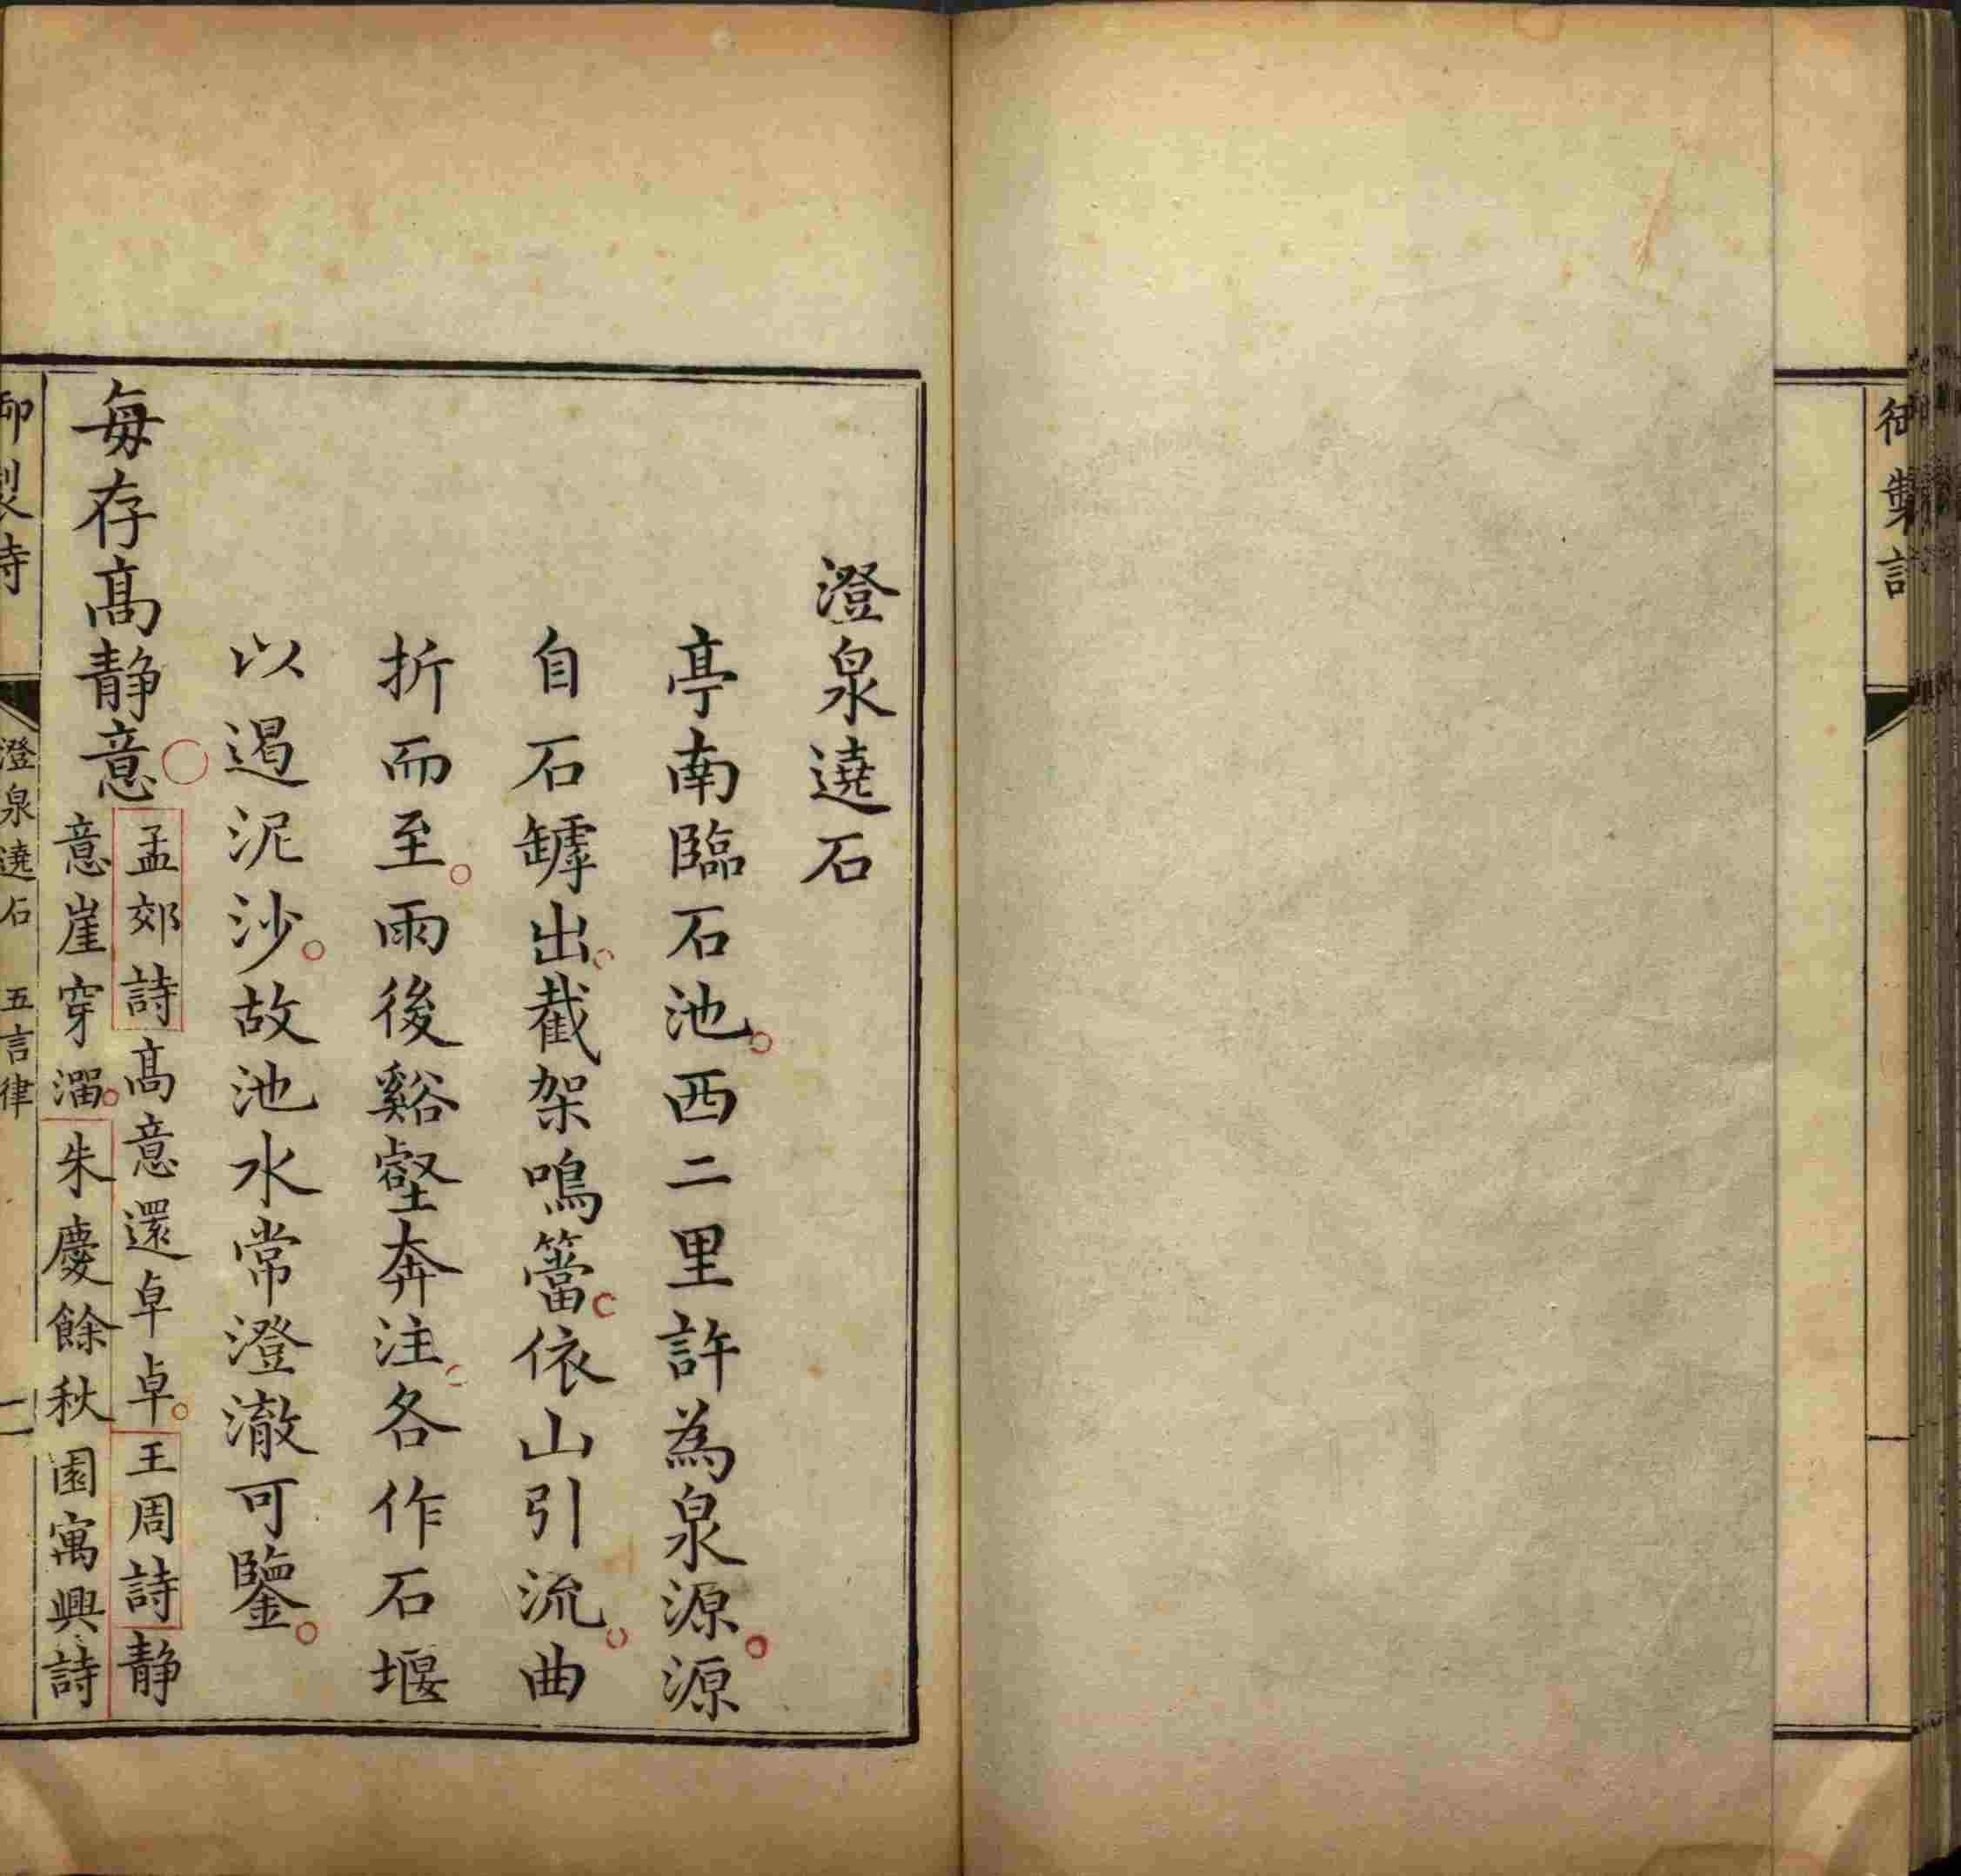 御製詩
澄泉遶石
亭南臨石池西二里許為泉源源
自石罅出截架鳴簹依山引流曲
折而至雨後谿壑奔注各作石堰
以遏泥沙故池水常澄澈可鑒
每存高静意
孟郊詩高意還卓卓王周詩静
意崖穿溜朱慶餘秋園寓興詩
御製詩 澄泉遶石 五言律 二